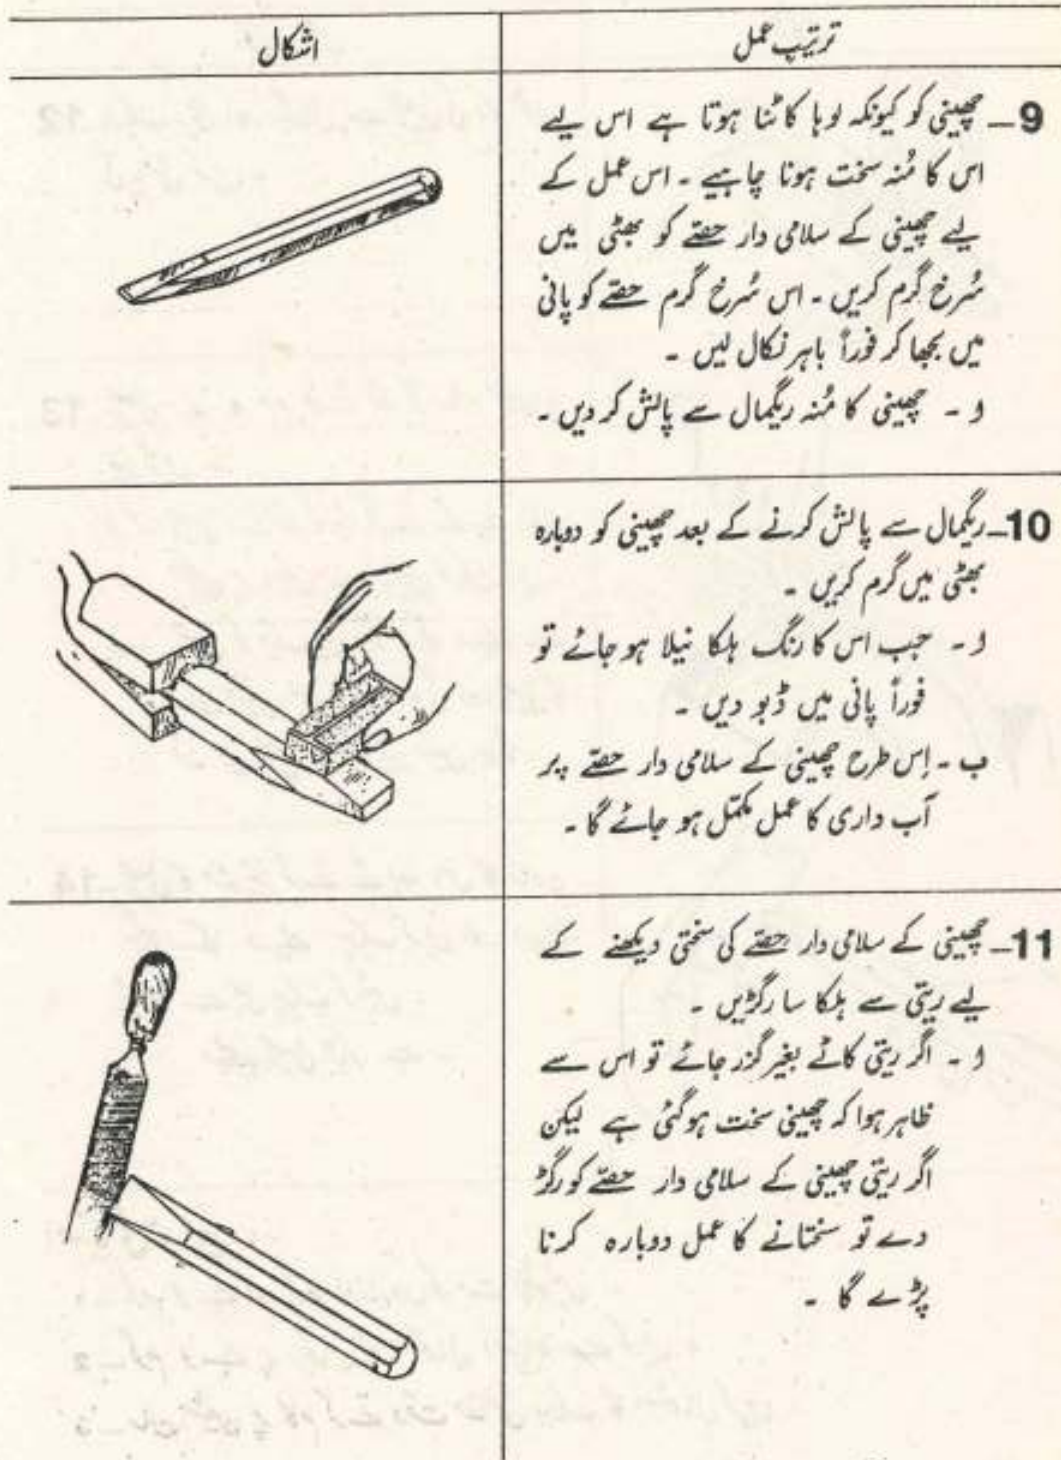 ترتیب عمل
اشکال
9_ چھینی کو کیونکہ لوہا کاٹنا ہوتا ہے اس لیے
اس کا مُنہ سخت ہونا چاہیے ۔ اس عمل کے
لیے چھینی کے سلامی دار حصّے کو بھٹی میں
سُرخ گرم کریں ۔ اس سُرخ گرم حصّے کو پانی
میں بجھا کر فوراً باہر نکال لیں ۔
ا ۔ چھینی کا مُنہ ریگمال سے پالش کر دیں ۔
10_ ریگمال سے پالش کرنے کے بعد چھینی کو دوبارہ
بھٹی میں گرم کریں ۔
ا ۔ جب اس کا رنگ ہلکا نیلا ہو جائے تو
فوراً پانی میں ڈبو دیں ۔
ب ۔ اِس طرح چھینی کے سلامی دار حصّے پر
آب داری کا عمل مکمّل ہو جائے گا ۔
11_ چھینی کے سلامی دار حصّے کی سختی دیکھنے کے
لیے ریتی سے ہلکا سا رگڑیں ۔
ا ۔ اگر ریتی کاٹے بغیر گزر جائے تو اس سے
ظاہر ہوا کہ چھینی سخت ہوگئی ہے لیکن
اگر ریتی چھینی کے سلامی دار حصّے کو رگڑ
دے تو سختانے کا عمل دوبارہ کرنا
پڑے گا ۔